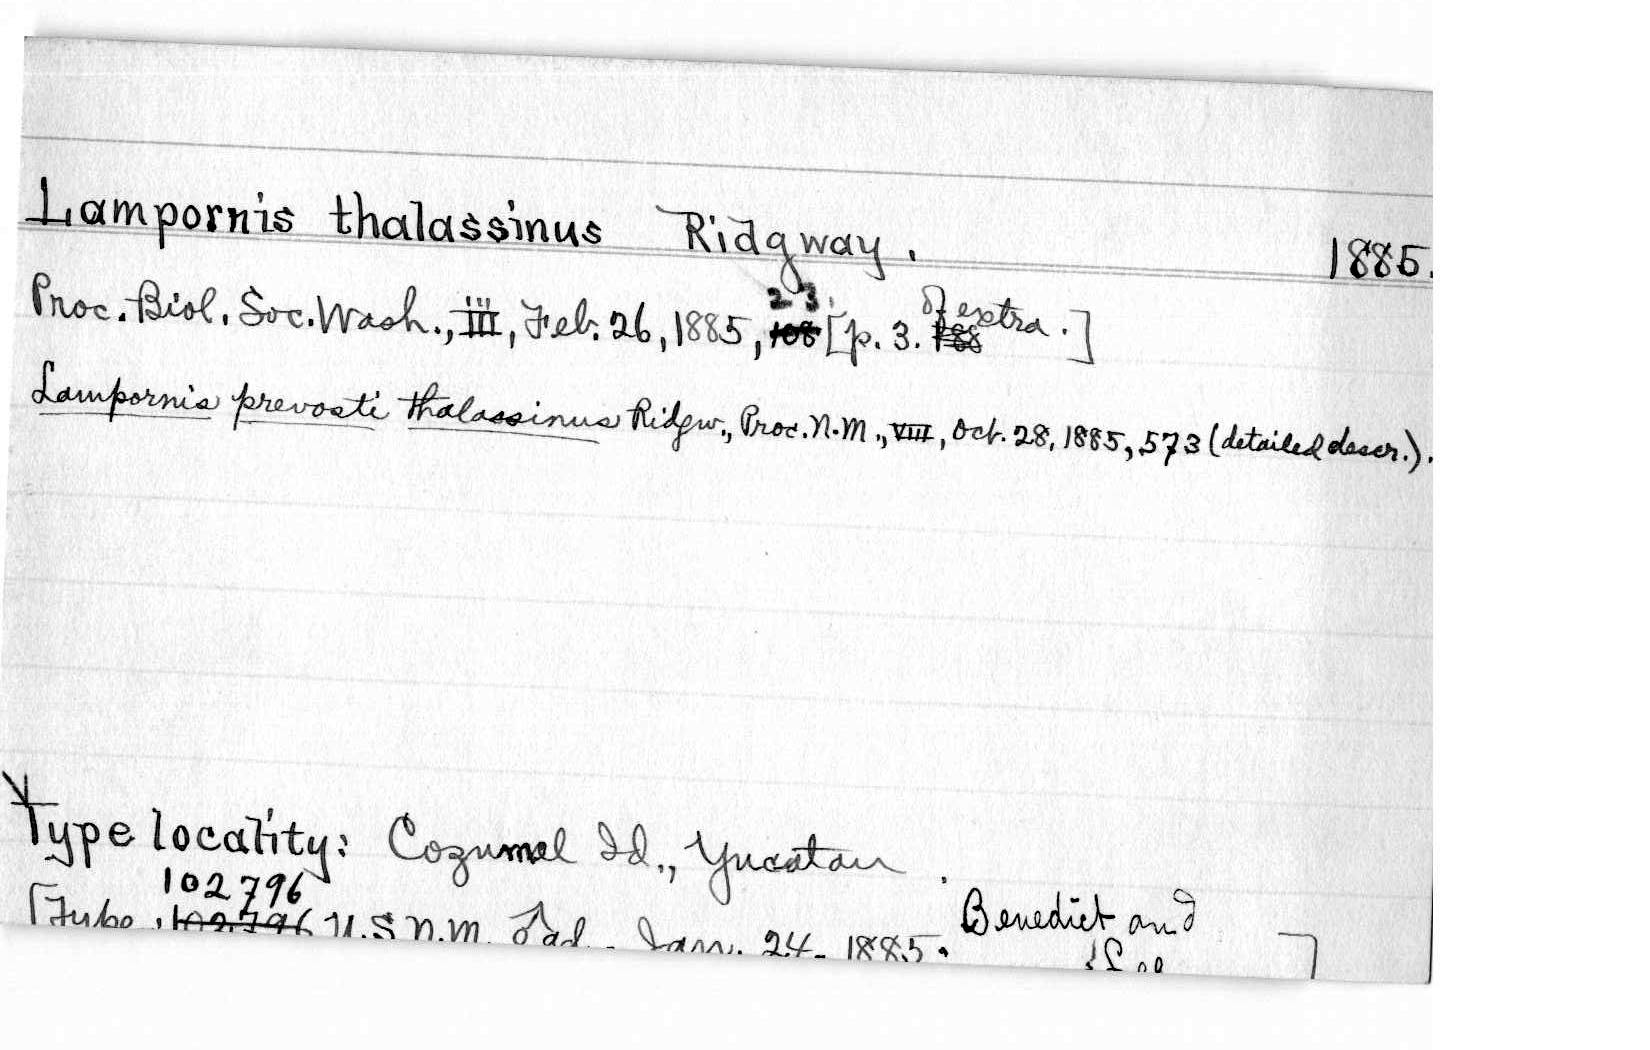 Lampornis thalassinus Ridgway. 1885.
Proc. Biol. Soc. Wash., III, Feb. 26, 1885, 108 23. [p. 3. 188 of extra.]
Lampornis prevosti thalassinus Ridgw., Proc. N.M., VIII, Oct. 28, 1885, 573 (detailed descr.).
Type locality: Cozumel Id., Yucatan.
102796
[Type, 102796 U.S.N.M. ♂ ad. Jan. 24- 1885. Benedict and
]